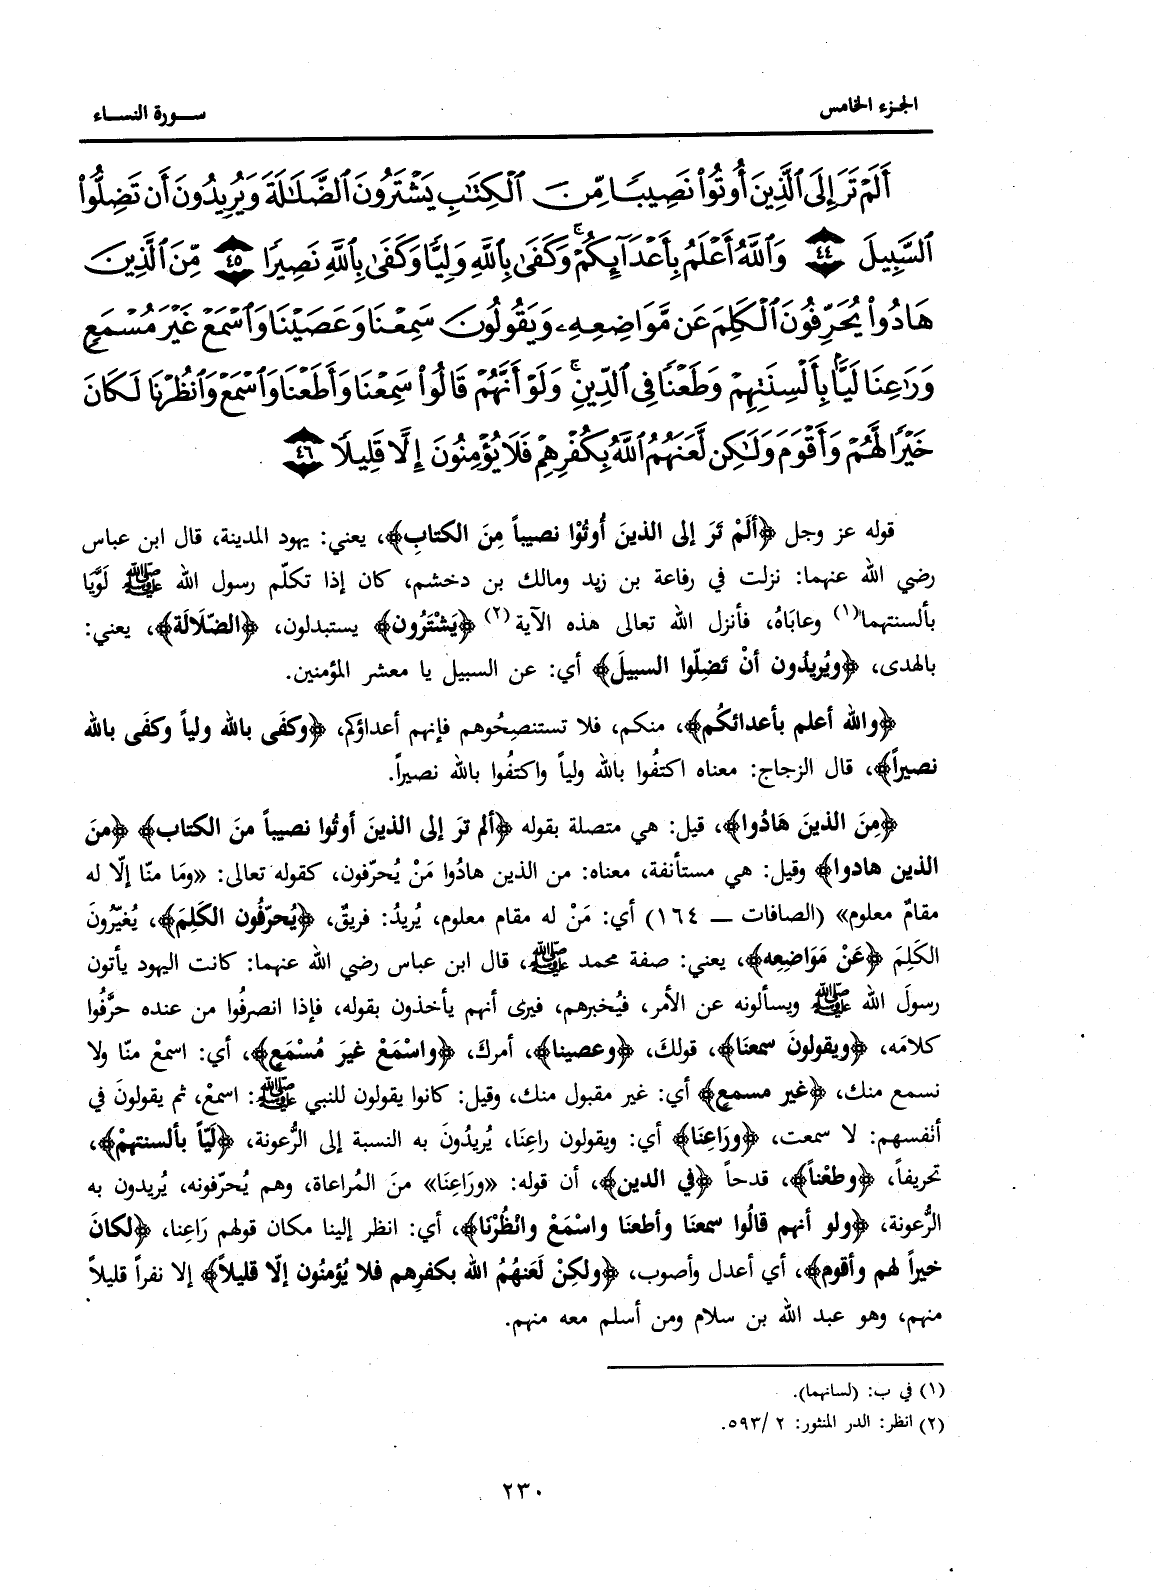 الجزء الخامس
ســورة النســاء
أَلَمْ تَرَ إِلَى ٱلَّذِينَ أُوتُوا۟ نَصِيبًا مِّنَ ٱلْكِتَٰبِ يَشْتَرُونَ ٱلضَّلَٰلَةَ وَيُرِيدُونَ أَن تَضِلُّوا۟
ٱلسَّبِيلَ ٤٤ وَٱللَّهُ أَعْلَمُ بِأَعْدَآئِكُمْ ۚ وَكَفَىٰ بِٱللَّهِ وَلِيًّا وَكَفَىٰ بِٱللَّهِ نَصِيرًا ٤٥ مِّنَ ٱلَّذِينَ
هَادُوا۟ يُحَرِّفُونَ ٱلْكَلِمَ عَن مَّوَاضِعِهِۦ وَيَقُولُونَ سَمِعْنَا وَعَصَيْنَا وَٱسْمَعْ غَيْرَ مُسْمَعٍ
وَرَٰعِنَا لَيًّۢا بِأَلْسِنَتِهِمْ وَطَعْنًا فِى ٱلدِّينِ ۚ وَلَوْ أَنَّهُمْ قَالُوا۟ سَمِعْنَا وَأَطَعْنَا وَٱسْمَعْ وَٱنظُرْنَا لَكَانَ
خَيْرًا لَّهُمْ وَأَقْوَمَ وَلَٰكِن لَّعَنَهُمُ ٱللَّهُ بِكُفْرِهِمْ فَلَا يُؤْمِنُونَ إِلَّا قَلِيلًا ٤٦
قوله عز وجل ﴿أَلَمْ تَرَ إلى الذينَ أُوتُوْا نصيباً مِنَ الكتابِ﴾، يعني: يهود المدينة، قال ابن عباس
رضي الله عنهما: نزلت في رفاعة بن زيد ومالك بن دخشم، كان إذا تكلّم رسول الله ﷺ لَوَّيَا
بألسنتهما(١) وعابَاهُ، فأنزل الله تعالى هذه الآية(٢) ﴿يَشْتَرُون﴾ يستبدلون، ﴿الضّلَالَة﴾، يعني:
بالهدى، ﴿ويُريدُون أنْ تَضِلّوا السبيلَ﴾ أي: عن السبيل يا معشر المؤمنين.
﴿والله أعلم بأعدائكُم﴾، منكم، فلا تستنصِحُوهم فإنهم أعداؤكم، ﴿وكفَى بالله ولياً وكفَى بالله
نصيراً﴾، قال الزجاج: معناه اكتفُوا بالله ولياً واكتفُوا بالله نصيراً.
﴿مِنَ الذينَ هَادُوا﴾، قيل: هي متصلة بقوله ﴿ألم ترَ إلى الذينَ أوتُوا نصيباً منَ الكتاب﴾ ﴿منَ
الذين هادوا﴾ وقيل: هي مستأنفة، معناه: من الذين هادُوا مَنْ يُحرّفون، كقوله تعالى: «ومَا منّا إلّا له
مقامٌ معلوم» (الصافات ــ ١٦٤) أي: مَنْ له مقام معلوم، يُريدُ: فريقٌ، ﴿يُحرّفُون الكَلِمَ﴾، يُغيّرُونَ
الكَلِمَ ﴿عَنْ مَوَاضِعِه﴾، يعني: صفة محمد ﷺ، قال ابن عباس رضي الله عنهما: كانت اليهود يأتون
رسولَ الله ﷺ ويسألونه عن الأمر، فيُخبرهم، فيرى أنهم يأخذون بقوله، فإذا انصرفُوا من عنده حرَّفُوا
كلامَه، ﴿ويقولونَ سمعنَا﴾، قولكَ، ﴿وعصينا﴾، أمركَ، ﴿واسْمَعْ غيرَ مُسْمَعٍ﴾، أي: اسمعْ منّا ولا
نسمع منك، ﴿غير مسمعٍ﴾ أي: غير مقبول منك، وقيل: كانوا يقولون للنبي ﷺ: اسمعْ، ثم يقولونَ في
أنفسهم: لا سمعت، ﴿ورَاعِنَا﴾ أي: ويقولون راعِنَا، يُريدُونَ به النسبة إلى الرُّعونة، ﴿لَيّاً بألسنتهمْ﴾،
تحريفاً، ﴿وطعْناً﴾، قدحاً ﴿في الدين﴾، أن قوله: «ورَاعِنَا» منَ المُراعاة، وهم يُحرّفونه، يُريدون به
الرُّعونة، ﴿ولو أنهم قالُوا سمعنَا وأطعنَا واسْمَعْ وانْظُرْنَا﴾، أي: انظر إلينا مكان قولهم رَاعِنا، ﴿لكانَ
خيراً لهم وأقوم﴾، أي أعدل وأصوب، ﴿ولكنْ لَعنهُمُ الله بكفرِهم فلا يُؤمنُون إلّا قليلاً﴾ إلا نفراً قليلاً
منهم، وهو عبد الله بن سلام ومن أسلم معه منهم.
(١) في ب: (لسانهما).
(٢) انظر: الدر المنثور: ٢ /٥٩٣.
٢٣٠